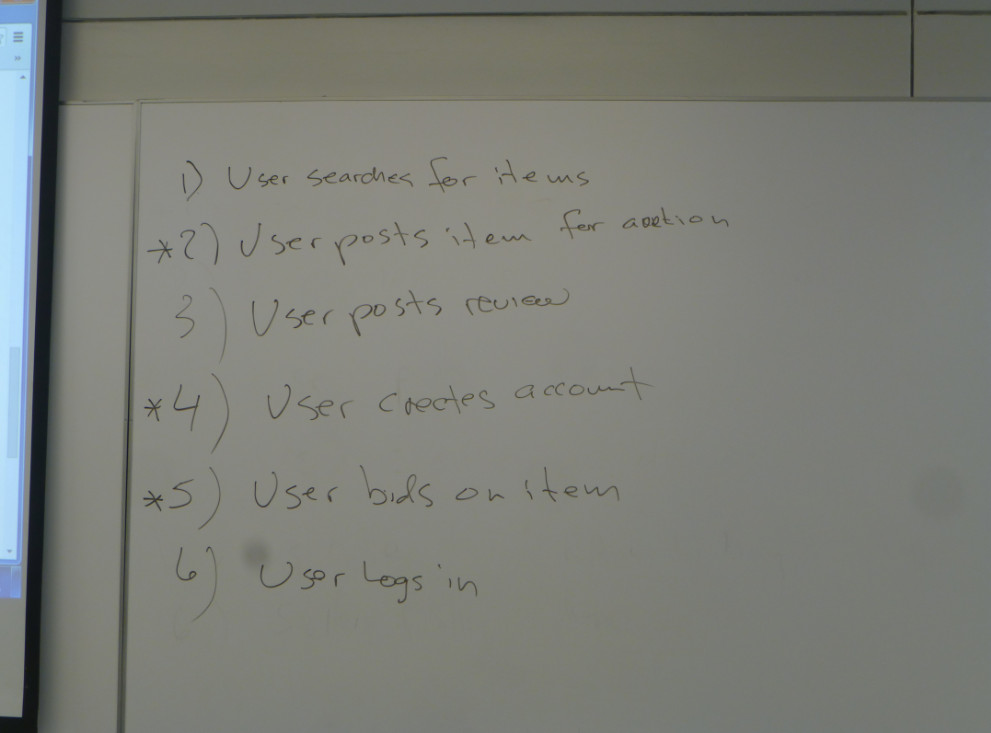 1) User searches for items
*2) User posts item for auction
3) User posts review
*4) User creates account
*5) User bids on item
6) User Logs in